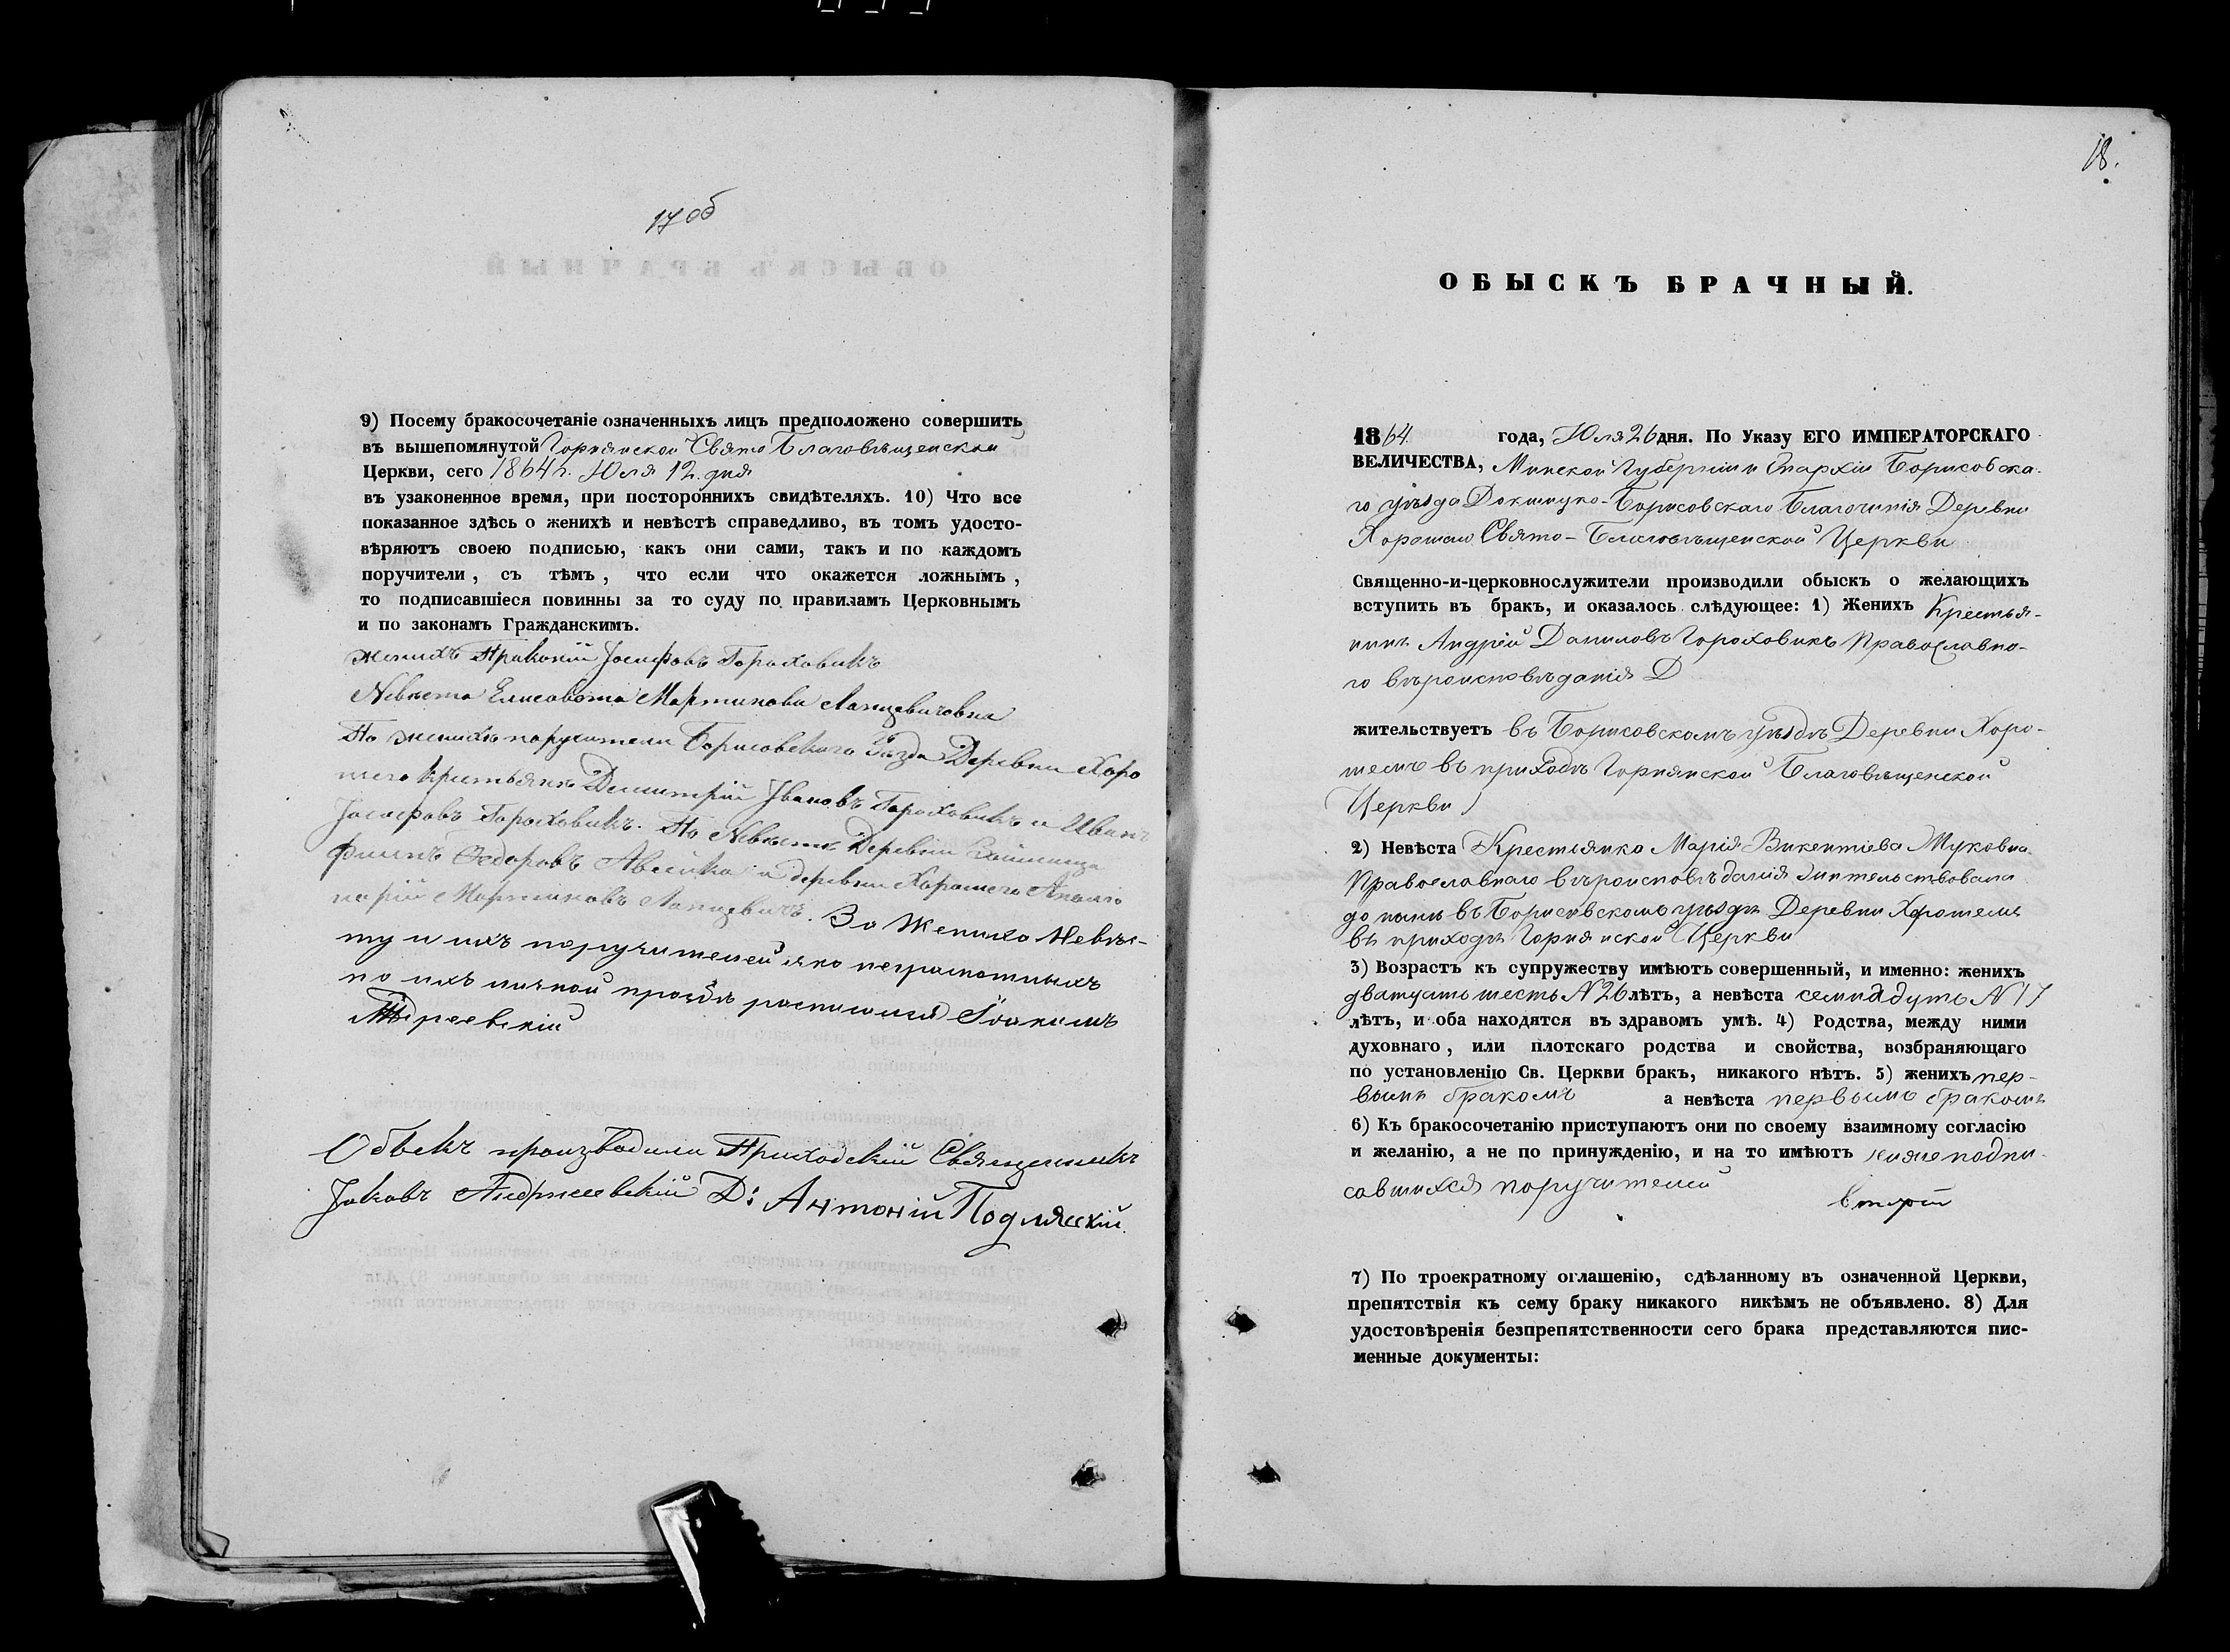 17 об
9) Посему бракосочетаніе означенныхъ лицъ предположено совершить
въ вышепомянутой Горнянской Свято Благовѣщенской
Церкви, сего 1864 г. Юля 12 дня
въ узаконенное время, при постороннихъ свидѣтеляхъ. 10) Что все
показанное здѣсь о женихѣ и невѣстѣ справедливо, въ томъ удосто-
вѣряютъ своею подписью, какъ они сами, такъ и по каждомъ
поручители, съ тѣмъ, что если что окажется ложнымъ,
то подписавшіеся повинны за то суду по правиламъ Церковнымъ
и по законамъ Гражданскимъ.
женихъ Іосифовъ Гороховикъ
Невѣста Елисовета Мартинова Лапцевичовна
По женихѣ поручители Борисовскаго уѣзда Деревни Хоро
шего Димитрій Ивановъ Гороховикъ и Иванъ
Іосифовъ Гороховикъ. По Невѣстѣ Деревни
Ѳедоровъ Авсейко и деревни Хорошего
Мартиновъ Лапцевичъ. За Жениха Невѣс-
ту и ихъ поручителей яко неграмотныхъ
по ихъ личной прозбѣ росписался
Обыскъ производили Приходскій Священникъ
Іаковъ Андріевскій Д: Антоній Подляскій.
18.
ОБЫСКЪ БРАЧНЫЙ.
1864 года, Юля 26 дня. По Указу ЕГО ИМПЕРАТОРСКАГО
ВЕЛИЧЕСТВА, Минской Губерніи и Епархіи Борисовска-
го уѣзда Докшицко-Борисовскаго Благочинія Деревни
Хорошаго Свято-Благовѣщенской Церкви
Священно-и-церковнослужители производили обыскъ о желающихъ
вступить въ бракъ, и оказалось слѣдующее: 1) Женихъ Крестья-
нинъ Андрей Даниловъ Гороховикъ Православно-
го вѣроисповѣданія Д
жительствуетъ въ Борисовскомъ уѣздѣ Деревни Хоро-
шемъ въ приходѣ Горнянской Благовѣщенской
Церкви
2) Невѣста Крестьянка Марія Викентіева Муковна
Православнаго вѣроисповѣданія жительствовала
до нынѣ въ Борисовскомъ уѣздѣ Деревни Хорошемъ
въ приходѣ Горнянской Церкви
3) Возрастъ къ супружеству имѣютъ совершенный, и именно: женихъ
дватцать шесть N 26 лѣтъ, а невѣста семнадцуть N 17
лѣтъ, и оба находятся въ здравомъ умѣ. 4) Родства, между ними
духовнаго, или плотскаго родства и свойства, возбраняющаго
по установленію Св. Церкви бракъ, никакого нѣтъ. 5) женихъ пер-
вымъ бракомъ а невѣста первымъ бракомъ
6) Къ бракосочетанію приступаютъ они по своему взаимному согласію
и желанію, а не по принужденію, и на то имѣютъ нижеподпи-
савшихся поручителей
7) По троекратному оглашенію, сдѣланному въ означенной Церкви,
препятствія къ сему браку никакого никѣмъ не объявлено. 8) Для
удостовѣренія безпрепятственности сего брака представляются пис-
менные документы: